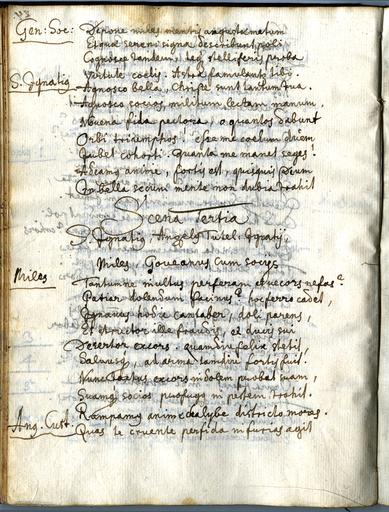 Gen: Soc: Depone miles mentis angustae metum
Et quae serenis signa describunt poli
Cognosce tandem, hac stelliferis proba
Virtute coelis. Astra famulantur tibi.
S. Ignatiq Agnosco bella, Christe sunt tantum tua.
Agnosco socios, militum lectam manum,
Nova fida pectora, o quantos dabunt
Orbi triumphos! esse me coelum ducem
Jubet cohorti. quanta me manet seges!
Adeamq anime, fortis est, quisquis Deum
In bella secum mente non dubia trahit
Scena Tertia
S. Ignatiq, Angelq Tutel. Ignatij,
Miles, Goveanus cum socijs
Miles Tantumne inultus perferam et vecors nefas?
Patiar dolendum facinus? hoc ferro cadet,
Ignavus hodie cantaber, doli parens,
Et structor ille fraudis, et ducis sui
Desertor excors. quamdiu felix stetit
Saluusq, ad arma tamdiu fortis fuit.
Nunc factus excors indolem probat suam,
Suamq socios profugq in pestem trahit.
Ang. Cust: Rampamq anime calybe districto moras.
Quas te cruente perfida in furias agit